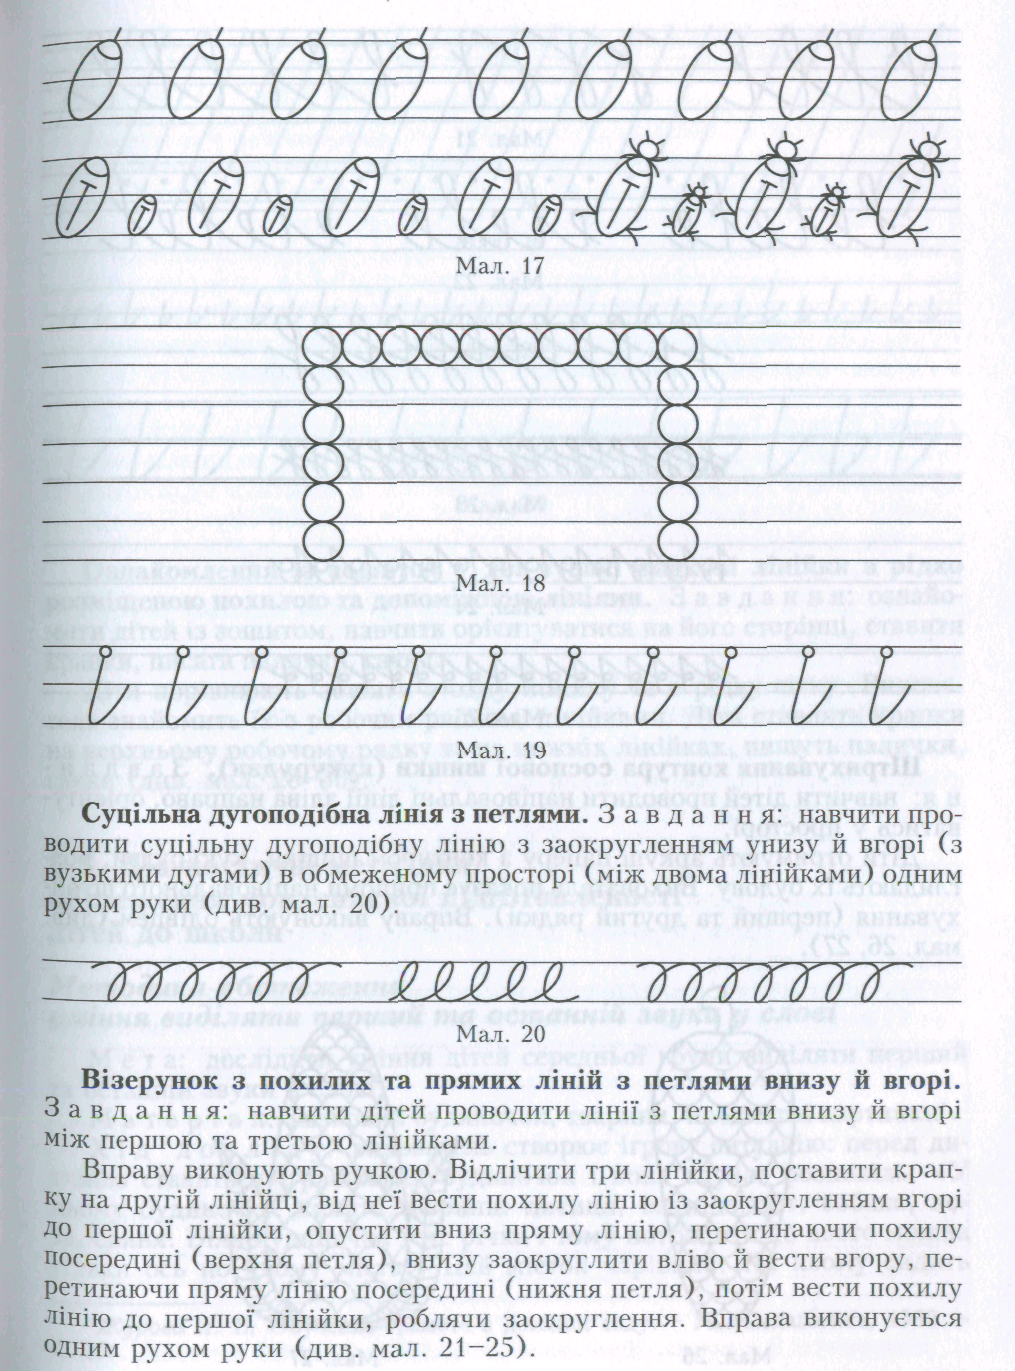 Мал. 17
Мал. 18
Мал. 19
Суцільна дугоподібна лінія з петлями. Завдання: навчити про-
водити суцільну дугоподібну лінію з заокругленням унизу й вгорі (з
вузькими дугами) в обмеженому просторі (між двома лінійками) одним
рухом руки (див. мал. 20).
Мал. 20
Візерунок з похилих та прямих ліній з петлями внизу й вгорі.
Завдання: навчити дітей проводити лінії з петлями внизу й вгорі
між першою та третьою лінійками.
Вправу виконують ручкою. Відлічити три лінійки, поставити крап-
ку на другій лінійці, від неї вести похилу лінію із заокругленням вгорі
до першої лінійки, опустити вниз пряму лінію, перетинаючи похилу
посередині (верхня петля), внизу заокруглити вліво й вести вгору, пе-
ретинаючи пряму лінію посередині (нижня петля), потім вести похилу
лінію до першої лінійки, роблячи заокруглення. Вправа виконується
одним рухом руки (див. мал. 21–25).